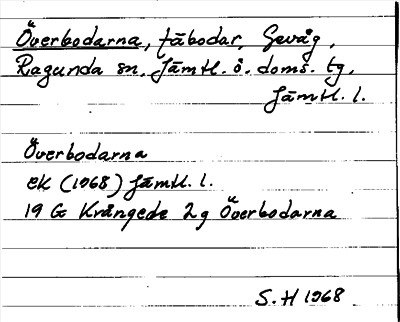 Överbodarna, fäbodar, Gevåg,
Ragunda sn, Jämtl. ö. doms. tg,
Jämtl. l.
Överbodarna
ek (1968) Jämtl. l.
19 G Krångede 2g Överbodarna
S. H 1968